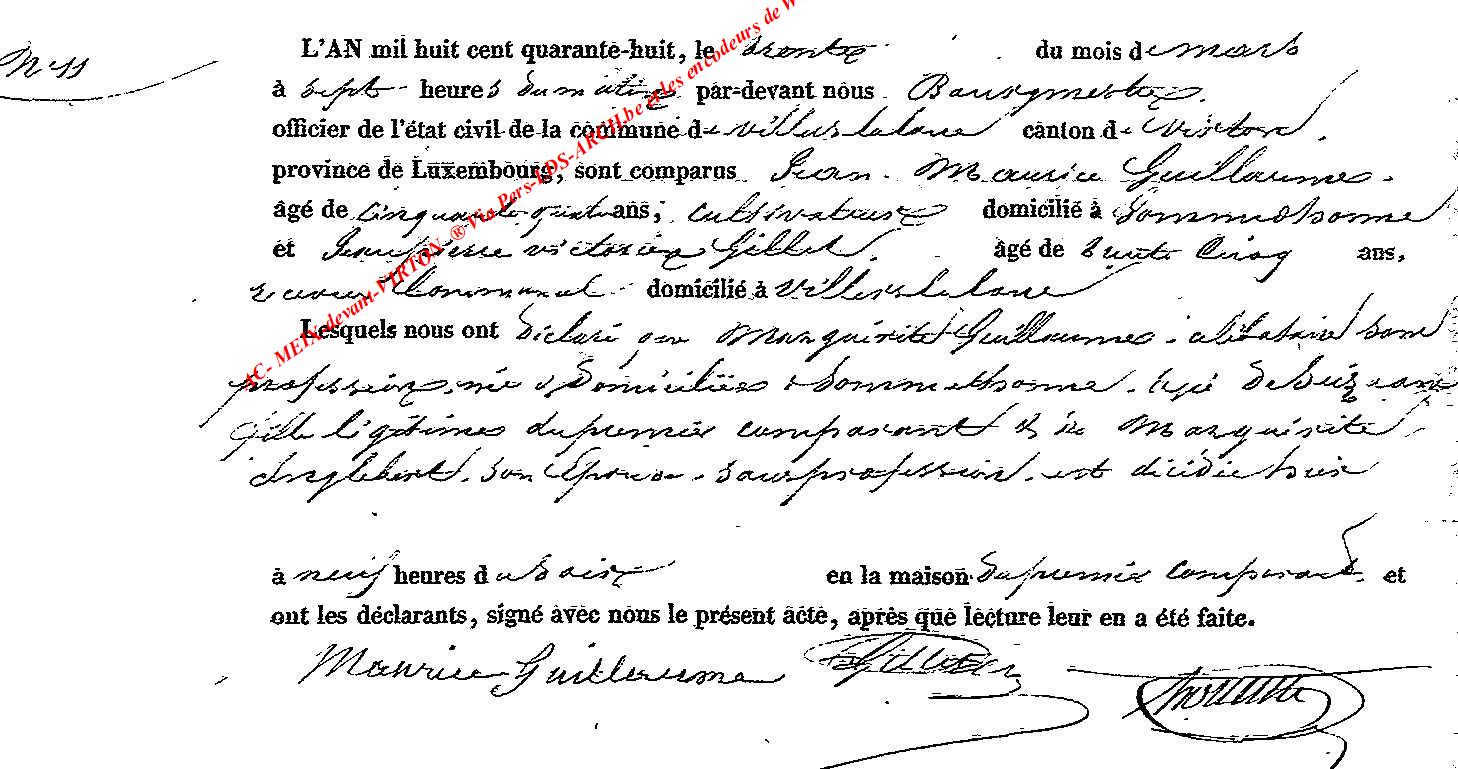 N° 11
L'AN mil huit cent quarante-huit, le trente du mois de mars
à sept heures du matin par-devant nous Bourgmestre
officier de l'état civil de la commune de villers laloue canton de Virton,
province de Luxembourg, sont comparus Jean Maurice Guillaume
âgé de cinquante quatre ans, cultivateur domicilié à Sommethonne
et Jean pierre victorien Gillet. âgé de trente Cinq ans,
receveur Communal domicilié à Villers laloue
Lesquels nous ont déclaré que Marguérite Guillaume célibataire sans
profession, née & domiciliée à Sommethonne. agé de ans
fille légitime du premier comparant & de Marguérite
Inglebert. son Epouse sans profession. est décédée hier
à neuf heures du soir en la maison du premier comparant et
ont les déclarants, signé avec nous le présent acte, après que lecture leur en a été faite.
Maurice Guillaume Gillet
AC- MEIX-devant-VIRTON ® Via Pers-LDS-ARCH.be et les encodeurs de